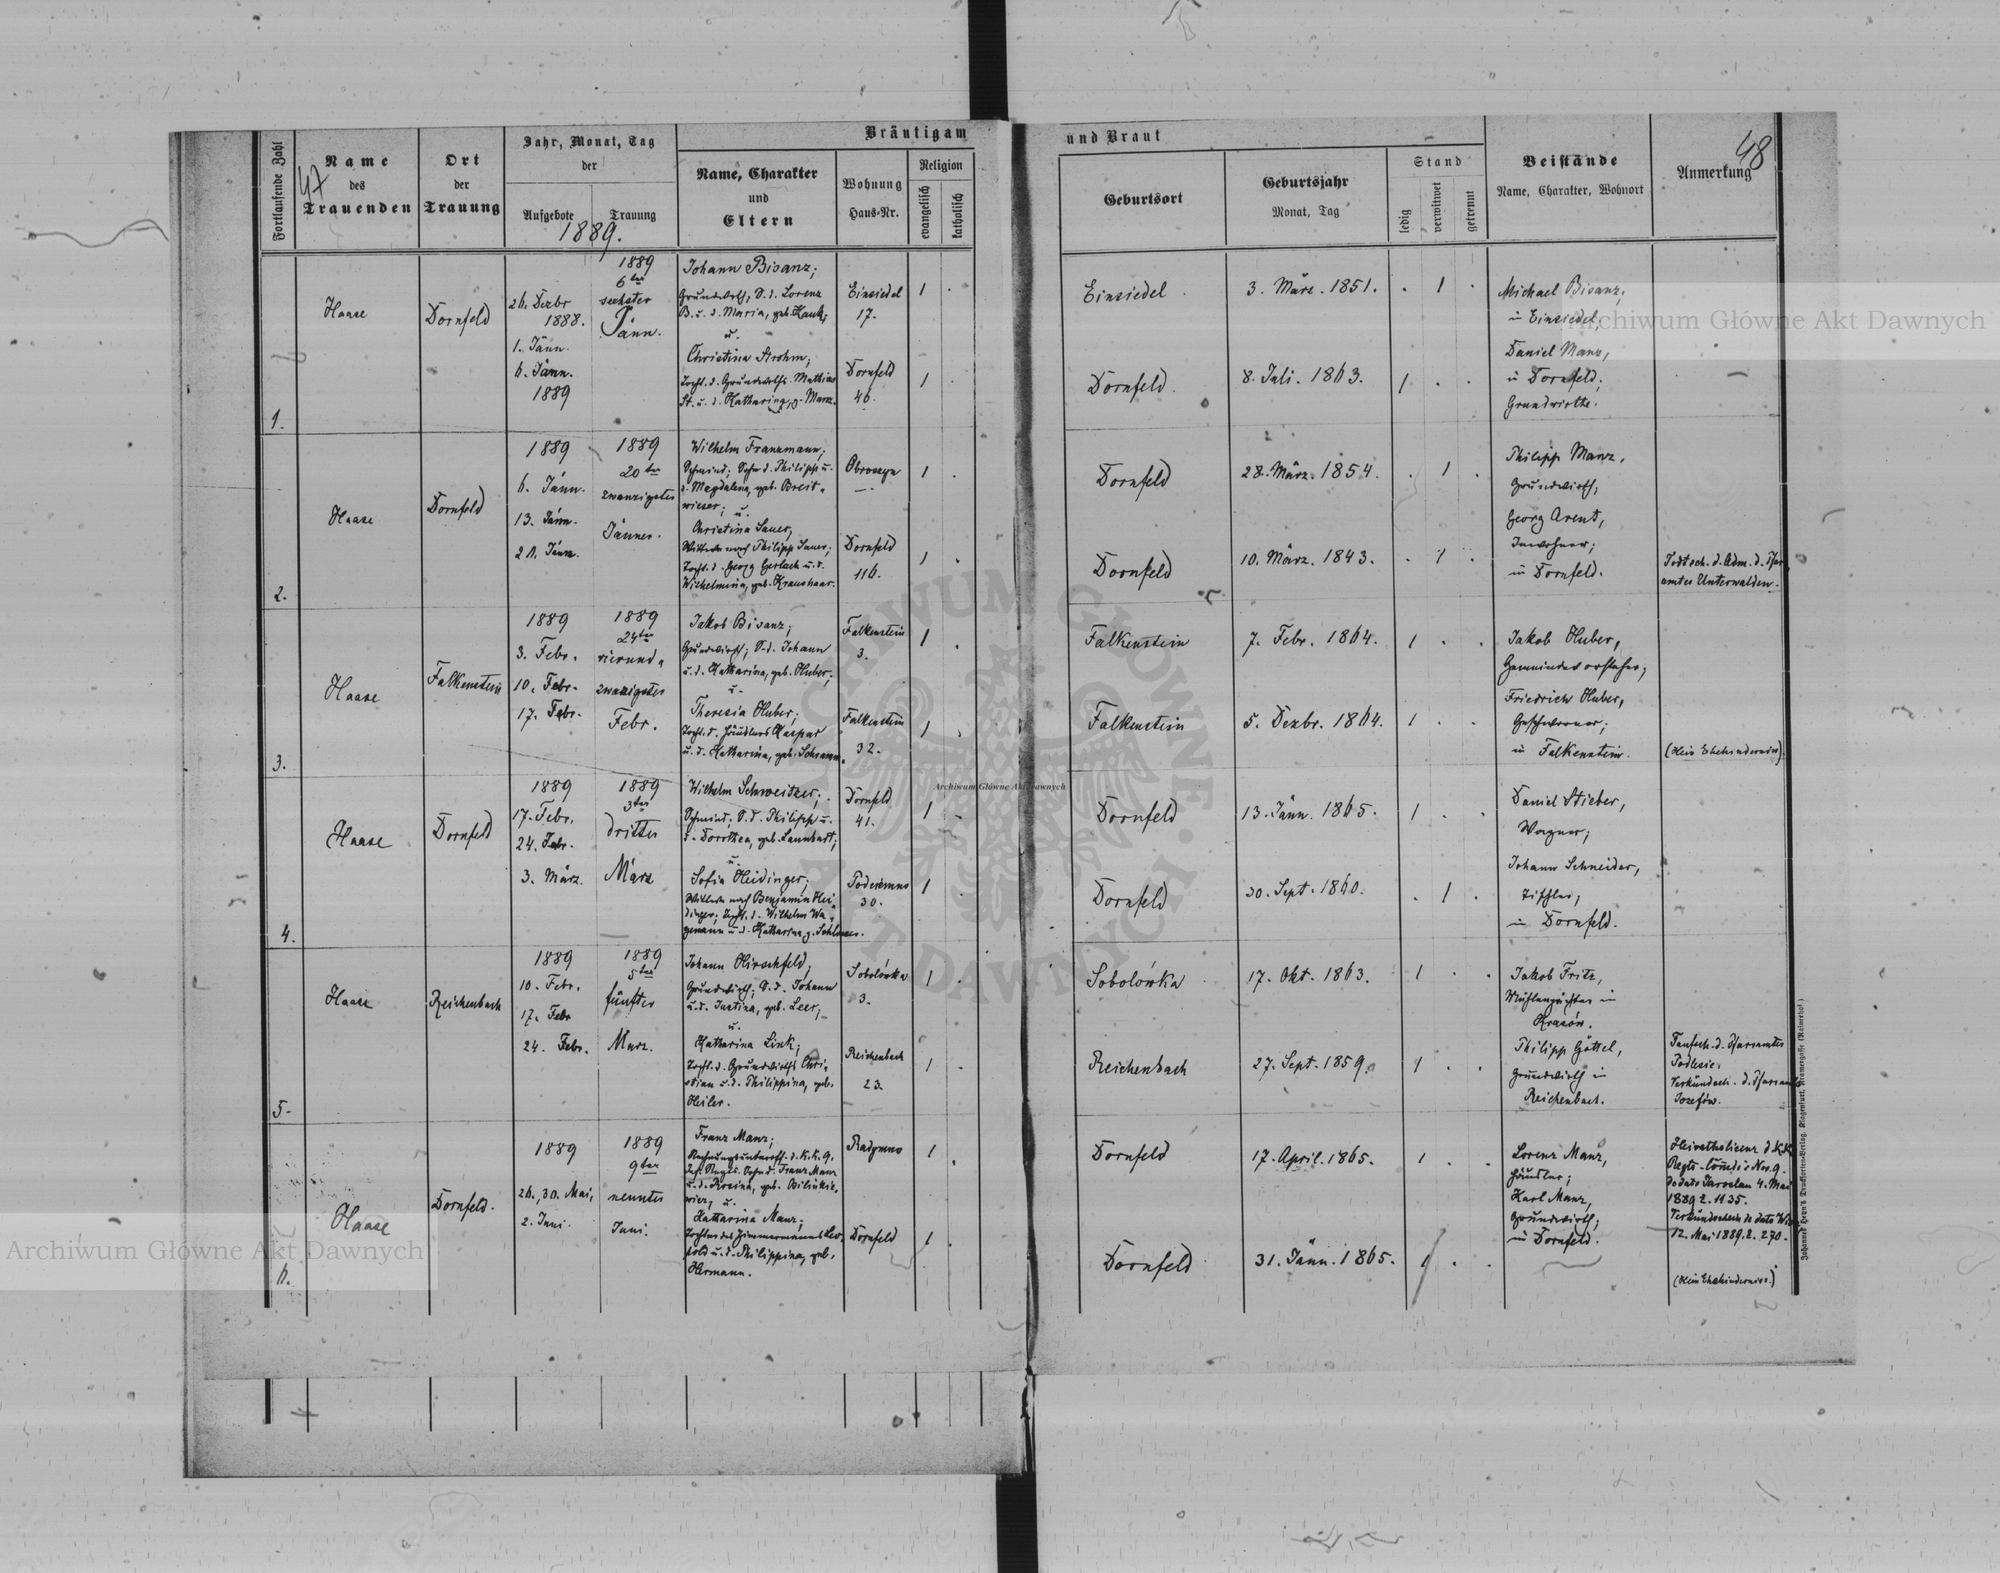 47
48
Bräutigam
und Braut
Fortlaufende Zahl
Name
des
Trauenden
Ort
der
Trauung
Jahr, Monat, Tag
der
Aufgebote
Trauung
1889.
Name, Charakter
und
Eltern
Wohnung
Haus-Nr.
Religion
evangelisch
katholisch
Geburtsort
Geburtsjahr
Monat, Tag
Stand
ledig
verwitwet
getrennt
Beistände
Name, Charakter, Wohnort
Anmerkung
1.
Haase
Dornfeld
26. Dezbr
1888.
1. Jänn.
6. Jänn.
1889
1889
6ter
sechster
Jänn.
Johann Bisanz;
Grundwirth, S. d. Lorenz
B. u. d. Maria, geb. Kauk;
u.
Christina Strohm;
Tocht. d. Grundwirths Mathias
St. u. d. Katharina, g. Manz.
Einsiedel
17.
Dornfeld
46.
1 .
1 .
Einsiedel
Dornfeld
3. März. 1851.
8. Juli. 1863.
. 1 .
1 . .
Michael Bisanz,
in Einsiedel,
Daniel Manz,
in Dornfeld;
Grundwirthe.
2.
Haase
Dornfeld
1889
6. Jänn.
13. Jänn.
20. Jänn.
1889
20ter
zwanzigster
Jänner.
Wilhelm Franzmann;
Schmied; Sohn d. Philipp u.
d. Magdalena, geb. Breit-
wieser; u.
Christina Sauer,
Wittwe nach Philipp Sauer;
Tocht. d. Georg Gerlach u. d.
Wilhelmina, geb. Kraushaar.
Obroszyn
Dornfeld
116.
1 .
1 .
Dornfeld
Dornfeld
28. März. 1854.
10. März. 1843.
. 1 .
. 1 .
Philipp Manz,
Grundwirth,
Georg Arent,
Inwohner;
in Dornfeld.
Todtsch. d. Adm. d. Pfar-
amtes Unterwalden.
3.
Haase
Falkenstein
1889
3. Febr.
10. Febr.
17. Febr.
1889
24ter
vierund-
zwanzigster
Febr.
Jakob Bisanz;
Grundwirth; S. d. Johann
u. d. Katharina, geb. Huber;
u.
Theresia Huber;
Tocht. d. Häuslers Kaspar
u. d. Katharina, geb. Schramm.
Falkenstein
3.
Falkenstein
32.
1 .
1 .
Falkenstein
Falkenstein
7. Febr. 1864.
5. Dezbr. 1864.
1 . .
1 . .
Jakob Huber,
Gemeindevorsteher;
Friedrich Huber,
Geschworner;
in Falkenstein.
(Kein Ehehinderniss)
4.
Haase
Dornfeld
1889
17. Febr.
24. Febr.
3. März.
1889
3ter
dritter
März
Wilhelm Schweitzer;
Schmied. S. d. Philipp u.
d. Dorothea, geb. Lannhart;
u.
Sofia Heidinger;
Wittwe nach Benjamin Hei-
dinger; Tocht. d. Wilhelm Wa-
gemann u. d. Katharina g.
Dornfeld
41.
30.
1 .
1 .
Dornfeld
Dornfeld
13. Jänn. 1865.
30. Sept. 1860.
1 . .
. 1 .
Daniel Stieber,
Wagner;
Johann Schneider,
Tischler;
in Dornfeld.
5.
Haase
Reichenbach
1889
10. Febr.
17. Febr
24. Febr.
1889
5ter
fünfter
März.
Johann Hirschfeld;
Grundwirth; S. d. Johann
u. d. Justina, geb. Leer;
u.
Katharina Link;
Tocht. d. Grundwirths Chri-
stian u. d. Philippina, geb.
Heiler.
Sobolówka
3.
Reichenbach
23.
1 .
1 .
Sobolówka
Reichenbach
17. Okt. 1863.
27. Sept. 1859.
1 . .
1 . .
Jakob Fritz,
Mühlenpächter in
Krasów.
Philipp Göttel,
Grundwirth in
Reichenbach.
Taufsch. d. Pfarramtes
Podlesie.
Verkündsch. d. Pfarramtes
Josefów.
6.
Haase
Dornfeld.
1889
26., 30. Mai,
2. Juni.
1889
9ter
neunter
Juni.
Franz Manz;
Rechnungsunteroff. d. K. K. 9.
Inf. Regts. Sohn d. Franz Manz
u. d. Rosina, geb.
u.
Katharina Manz;
Tochter des Zimmermanns Leo-
pold u. d. Philippina, geb.
Hermann.
Radymno
Dornfeld
1 .
1 .
Dornfeld
Dornfeld
17. April. 1865.
31. Jänn. 1865.
1 . .
1 . .
Lorenz Manz,
Häusler;
Karl Manz,
Grundwirth;
in Dornfeld.
Heirathslicenz d. K. K.
Regts. Comdo's Nro. 9.
de dato Jaroslau 4. Mai
1889 Z. 1135.
Verkündschein de dato Wien
12. Mai 1889. Z. 270.
(Kein Ehehinderniss.)
Johannes Heyn's Drucksorten-Verlag, Klagenfurt, Kramergasse (Kaiserhof.)
Archiwum Główne Akt Dawnych
Archiwum Główne Akt Dawnych
Archiwum Główne Akt Dawnych
ARCHIWUM GŁÓWNE AKT DAWNYCH